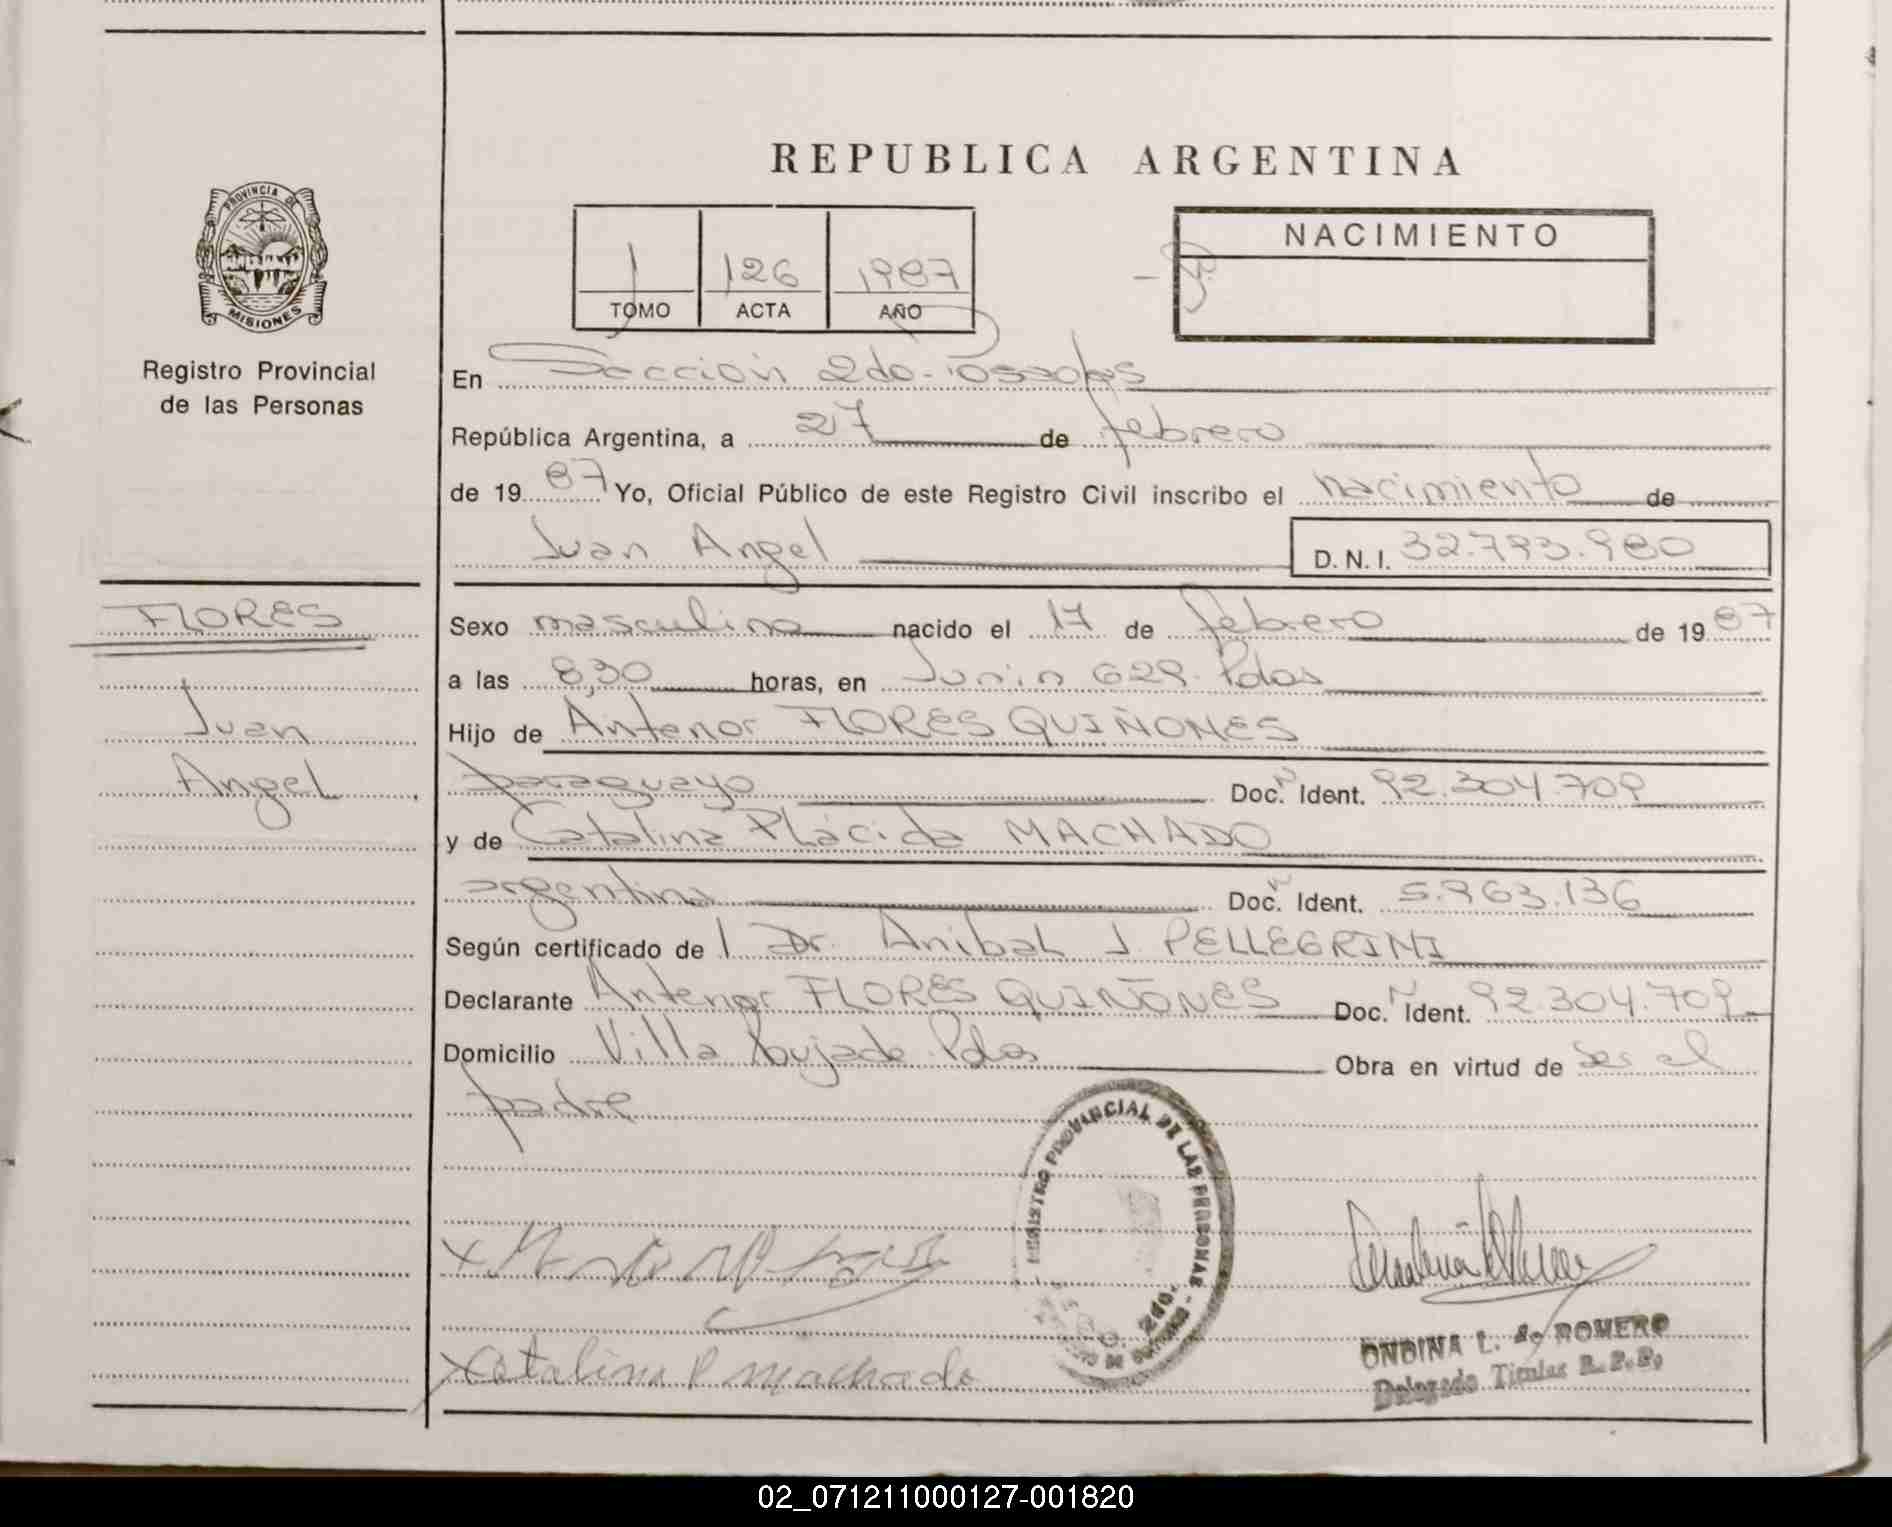 REPUBLICA ARGENTINA
PROVINCIA DE
MISIONES
Registro Provincial
de las Personas
1 126 1987
TOMO ACTA AÑO
NACIMIENTO
En Sección 2do. Posadas
República Argentina, a 27 de febrero
de 1987 Yo, Oficial Público de este Registro Civil inscribo el nacimiento de
Juan Angel D. N. I. 32.793.980
FLORES
Juan
Angel
Sexo masculino nacido el 17 de febrero de 1987
a las 8,30 horas, en Junin 629. Pdas
Hijo de Antenor FLORES QUIÑONES
paraguayo Doc. N Ident. 92.304.709
y de Catalina Plácida MACHADO
argentina Doc. N Ident. 5.963.136
Según certificado de l Dr. Anibal J. PELLEGRINI
Declarante Antenor FLORES QUIÑONES Doc. N Ident. 92.304.709
Domicilio Villa Pdas Obra en virtud de ser el
padre
REGISTRO PROVINCIAL DE LAS PERSONAS
2do.
Catalina P machado
ONDINA L. ROMERO
Delegado Titular R.P.P.
02_071211000127-001820